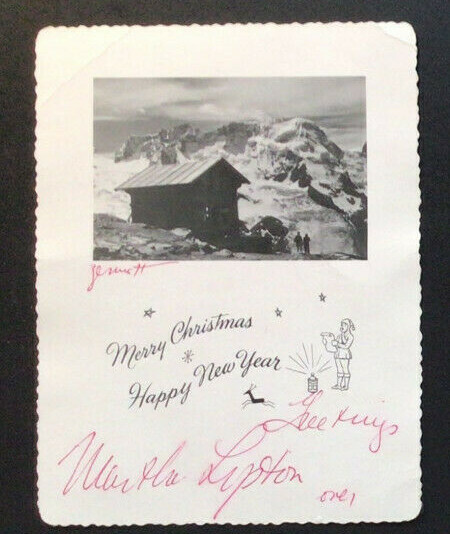 Zermatt
Merry Christmas
Happy New Year
Greetings
Martha Lipton
over